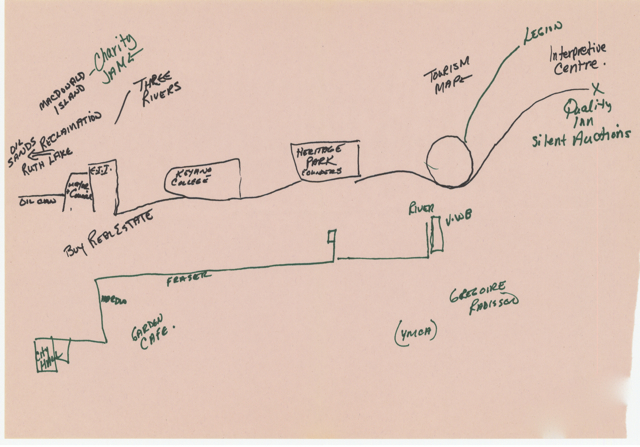 LEGION
Interpretive
Centre.
X
Quality
Inn
Silent Auctions
TOURISM
MAP
Charity
JAM
MACDONALD
ISLAND
THREE
RIVERS
OIL
SANDS
RECLAMATION
RUTH LAKE
OIL CAN
KEYANO
COLLEGE
HERITAGE
PARK
FOUNDERS
BUY REAL ESTATE
RIVER
V.WB
FRASER
HARDIN
GARDEN
CAFE.
CITY
HALL
(YMCA)
GREGOIRE
RADISSON